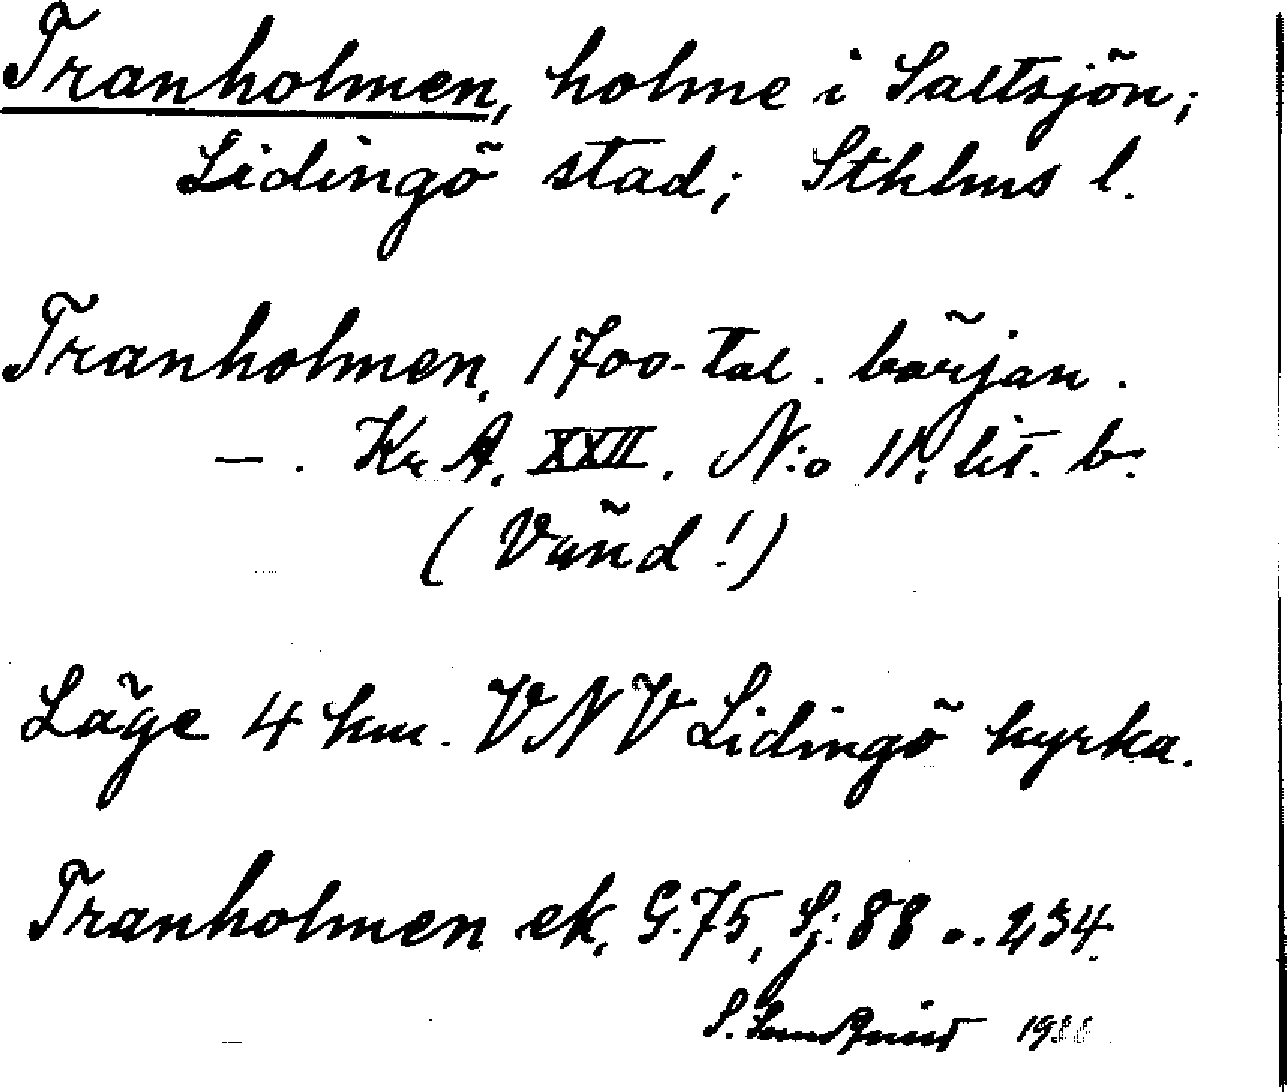 Tranholmen, holme i Saltsjön;
Lidingö stad; Sthlms l.
Tranholmen, 1700-tal. början.
—. Kr A. XXII. N:o 11. lit. b.
(Vänd!)
Läge 4 km. VNV Lidingö kyrka.
Tranholmen ek. G. 75, Sj: 88 o. 234.
S.